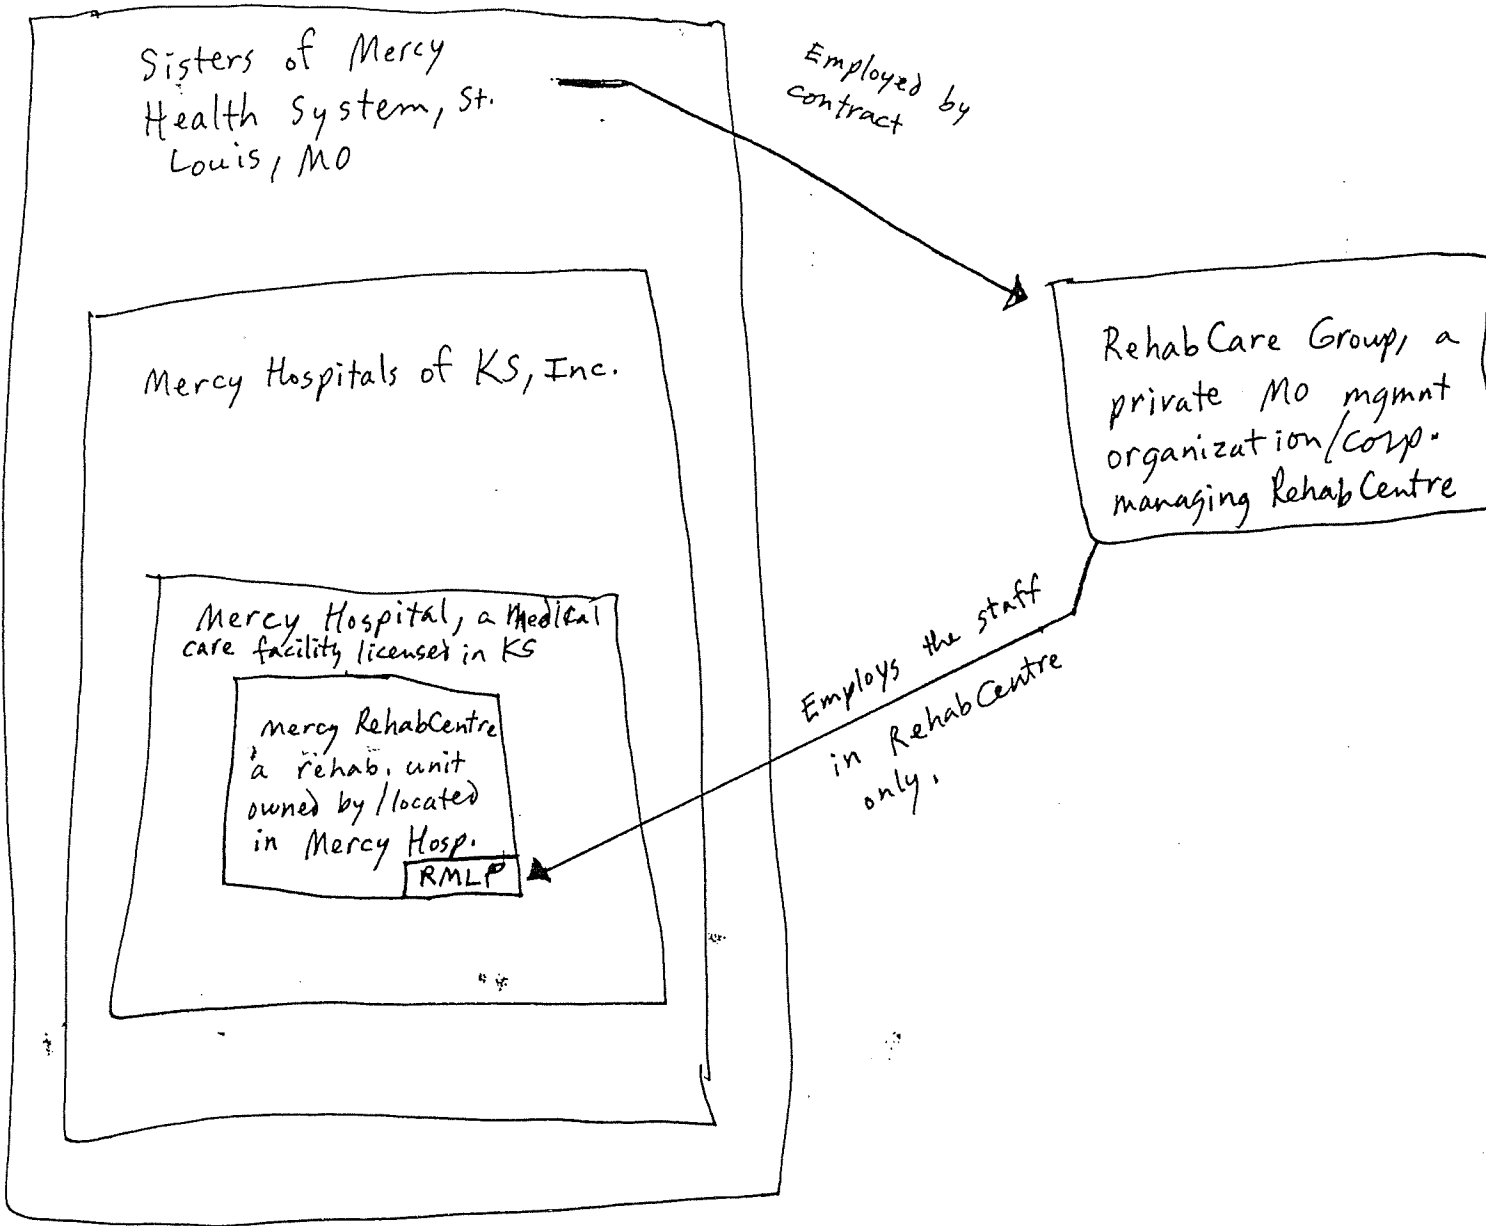 Sisters of Mercy
Health System, St.
Louis, MO
Employed by
contract
RehabCare Group, a
private MO mgmnt
organization/corp.
managing RehabCentre
Mercy Hospitals of KS, Inc.
Mercy Hospital, a medical
care facility licensed in KS
Mercy RehabCentre
a rehab. unit
owned by/located
in Mercy Hosp.
RMLP
Employs the staff
in RehabCentre
only.